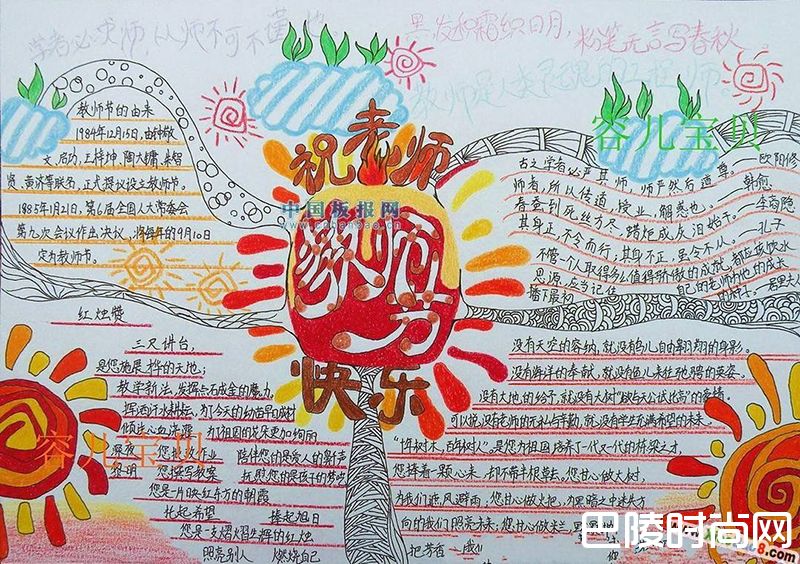 学者必求师,从师不可不谨也
黑发积霜织日月,粉笔无言写春秋
容儿宝贝
祝老师
中国板报网
教师节
快乐
教师节的由来
1984年12月15日,由钟敬
文、启功、王梓坤、陶大镛、朱智
贤、黄济等联名,正式提议设立教师节。
1985年1月21日,第6届全国人大常委会
第九次会议作出决议,将每年的9月10日
定为教师节。
古之学者必严其师,师严然后道尊。 欧阳修
师者,所以传道、授业、解惑也。 韩愈
春蚕到死丝方尽,蜡炬成灰泪始干。 李商隐
其身正,不令而行,其身不正,虽令不从。 孔子
不管一个人取得多么值得骄傲的成就,都应该饮水
思源,应当记住
自己的老师为他的成长
播下最初
的种子。居里夫人
红烛赞
三尺讲台,
是您施展
的天地;
教学新法,发挥点石成金的魔力,
挥洒汗水耕耘,为了今天的幼苗早日成材
倾注心血浇灌
为了祖国的花朵更加绚丽
深夜 您批改作业
陪伴您的是爱人的鼾声
黎明 您撰写教案
抚慰您的是孩子的梦呓
您是一片映红东方的朝霞
托起希望
捧起旭日
您是一支熠熠生辉的红烛
照亮别人 燃烧自己
容儿宝贝
没有天空的容纳,就没有鸟儿自由翱翔的身影。
没有海洋的奉献,就没有鱼儿来往驰骋的英姿。
没有大地的给予,就没有大树“欲与天公试比高”的豪情。
可以说,没有老师的无私与辛勤,就没有学生充满希望的未来。
“十年树木,百年树人”,是您为祖国培养了一代又一代的桥梁之才。
您捧着一颗心来,却不带半根草去,您甘心做大树,
为我们遮风避雨,您甘心做火把,为黑暗之中迷失方
向的我们照亮前方,您甘心做米兰,
把芳香
巴陵时尚网